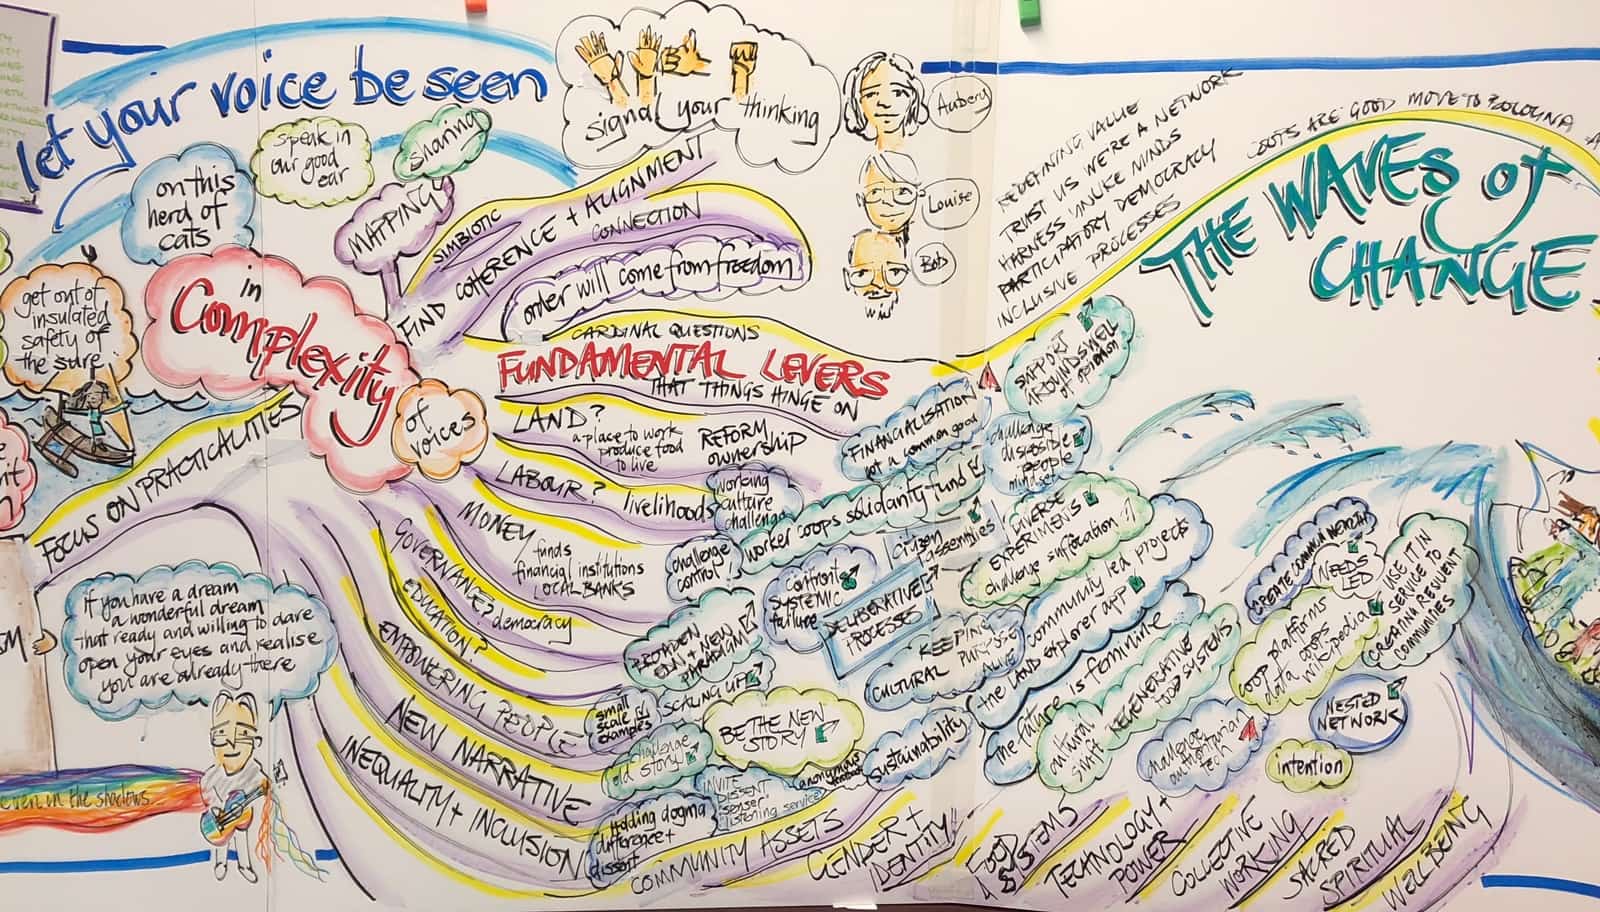 let your voice be seen
on this
herd of
cats
speak in
our good
ear
sharing
MAPPING
signal your thinking
Aubery
Louise
Bob
get out of
insulated
safety of
the sure
in
Complexity
of
voices
FOCUS ON PRACTICALITIES
FIND COHERENCE + ALIGNMENT
SIMBIOTIC
CONNECTION
order will come from freedom
CARDINAL QUESTIONS
FUNDAMENTAL LEVERS
THAT THINGS HINGE ON
LAND?
a place to work
produce food
to live
REFORM
ownership
LABOUR?
livelihoods
working
culture
challenge
MONEY
funds
financial institutions
LOCAL BANKS
GOVERNANCE?
democracy
EDUCATION?
EMPOWERING PEOPLE
NEW NARRATIVE
INEQUALITY + INCLUSION
COMMUNITY ASSETS
GENDER +
IDENTITY
FOOD
SYSTEMS
TECHNOLOGY +
POWER
COLLECTIVE
WORKING
SACRED
SPIRITUAL
WELLBEING
if you have a dream
a wonderful dream
that ready and willing to dare
open your eyes and realise
you are already there
even in the shadows...
REDEFINING VALUE
TRUST US WE'RE A NETWORK
HARNESS UNLIKE MINDS
PARTICIPATORY DEMOCRACY
INCLUSIVE PROCESSES
COOTS ARE GOOD MOVE TO BOLOGNA
THE WAVES of
CHANGE
SUPPORT
GROUNDSWELL
of opinion
FINANCIALISATION
not a common good
challenge
disposable
people
mindset
worker coops solidarity fund
challenge
control
citizen
assemblies
DIVERSE
EXPERIMENTS
challenge suffocation
confront
SYSTEMIC
failure
DELIBERATIVE
PROCESSES
community led projects
the LAND explorer app
BROADEN
EDU + NEW
PARADIGM
KEEPING
PURPOSE
ALIVE
CULTURAL
SCALING UP
small
scale
examples
BE THE NEW
STORY
challenge
old story
sustainability
the future is feminine
REGENERATIVE
FOOD SYSTEMS
mutual
challenge
authoritarian
tech
INVITE
DISSENT
'senser'
listening service
anonymous
Holding dogma
difference +
dissent
CREATE COMMON WEALTH
NEEDS
LED
coop platforms
data coops
wikipedia
USE IT IN
SERVICE TO
CREATING RESILIENT
COMMUNITIES
NESTED
NETWORK
intention